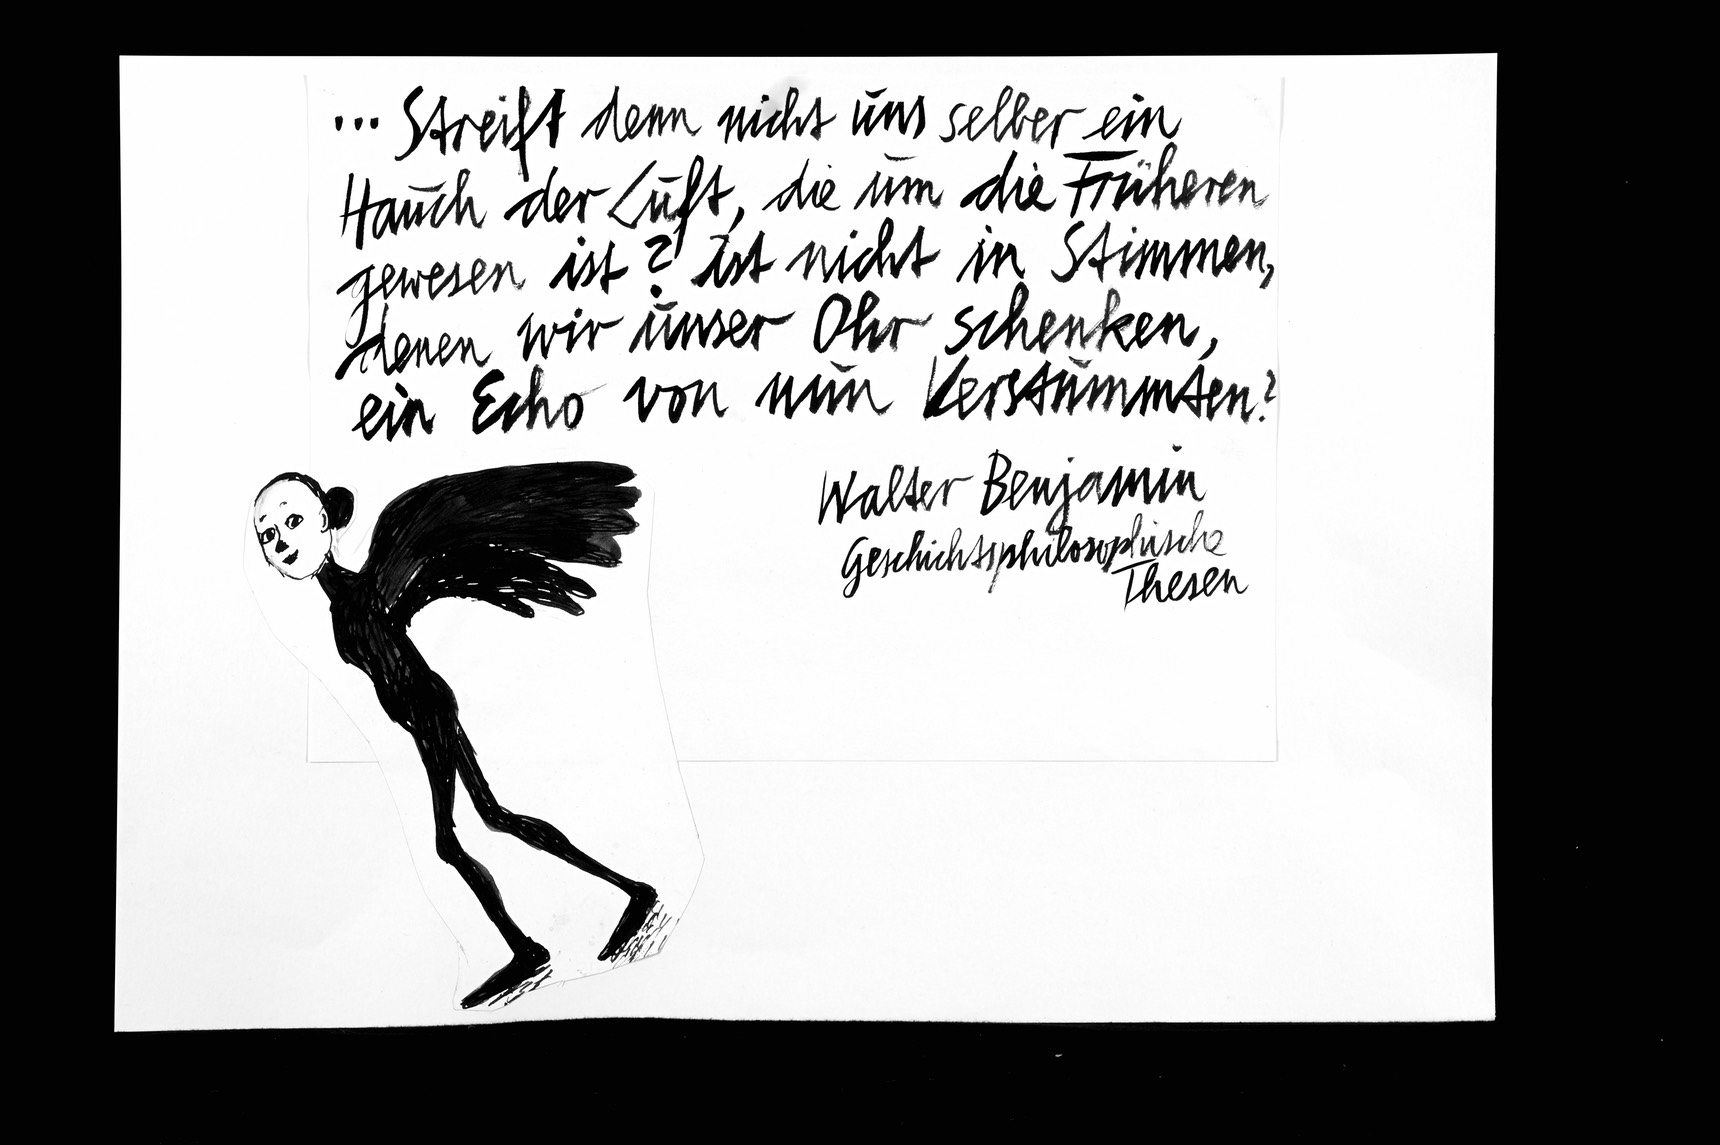 ... Streift denn nicht uns selber ein
Hauch der Luft, die um die Früheren
gewesen ist? ist nicht in Stimmen,
denen wir unser Ohr schenken,
ein Echo von nun Verstummten?
Walter Benjamin
Geschichtsphilosophische
Thesen